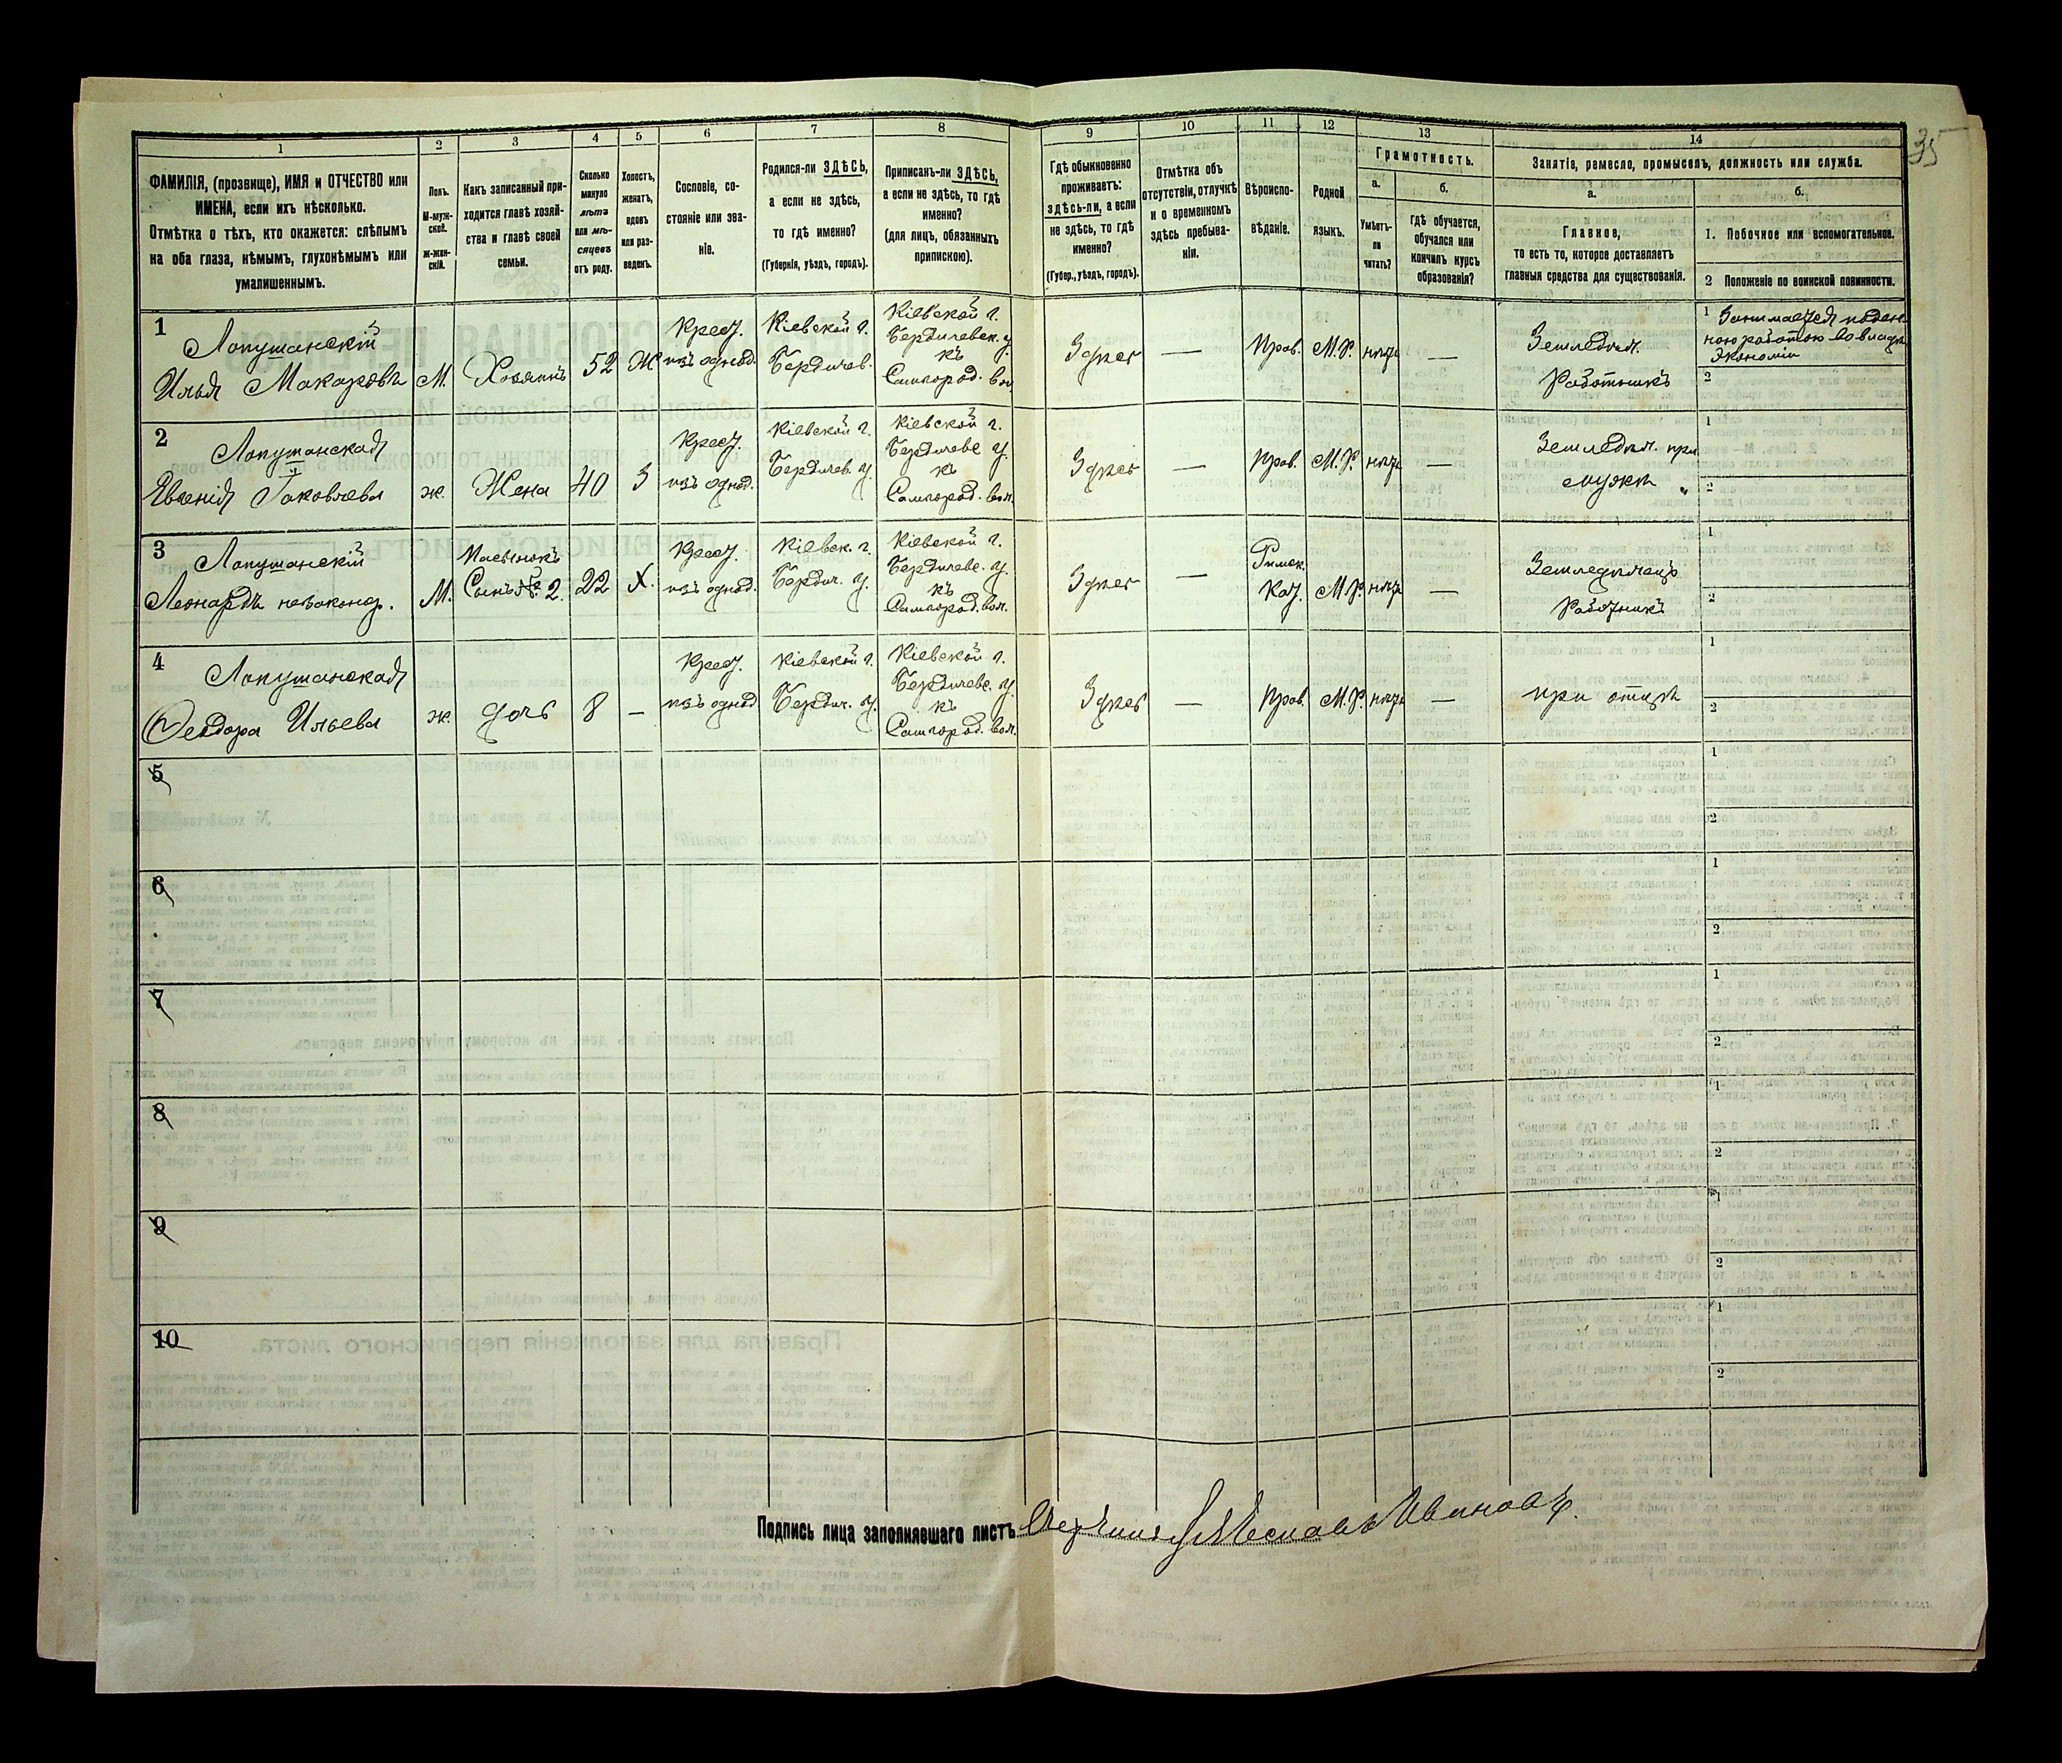 35
1 2 3 4 5 6 7 8 9 10 11 12 13 14
ФАМИЛІЯ, (прозвище), ИМЯ и ОТЧЕСТВО или
ИМЕНА, если ихъ нѣсколько.
Отмѣтка о тѣхъ, кто окажется: слѣпымъ
на оба глаза, нѣмымъ, глухонѣмымъ или
умалишеннымъ.
Полъ.
М-муж-
ской.
Ж-жен-
скій.
Какъ записанный при-
ходится главѣ хозяй-
ства и главѣ своей
семьи.
Сколько
минуло
лѣтъ
или мѣ-
сяцевъ
отъ роду.
Холостъ,
женатъ,
вдовъ
или раз-
веденъ.
Сословіе, со-
стояніе или зва-
ніе.
Родился-ли ЗДѢСЬ,
а если не здѣсь,
то гдѣ именно?
(Губернія, уѣздъ, городъ).
Приписанъ-ли ЗДѢСЬ,
а если не здѣсь, то гдѣ
именно?
(для лицъ, обязанныхъ
припискою).
Гдѣ обыкновенно
проживаетъ:
здѣсь-ли, а если
не здѣсь, то гдѣ
именно?
(Губер., уѣздъ, городъ).
Отмѣтка объ
отсутствіи, отлучкѣ
и о временномъ
здѣсь пребыва-
ніи.
Вѣроиспо-
вѣданіе.
Родной
языкъ.
Грамотность.
а.
Умѣетъ-
ли
читать?
б.
гдѣ обучается,
обучался или
кончилъ курсъ
образованія?
Занятіе, ремесло, промыселъ, должность или служба.
а.
Главное,
то есть то, которое доставляетъ
главныя средства для существованія.
б.
1. Побочное или вспомогательное.
2 Положеніе по воинской повинности.
1
Лопушанскій
Илья Макаровъ
М.
Хозяинъ
52
Ж
Крест.
изъ однод.
Кіевской г.
Бердичев.
Кіевской г.
Бердичевск. у.
къ
Самгород. вол
Здѣсь
—
Прав.
М.Р.
нѣтъ
—
Земледѣл.
Работникъ
1 Занимается поден
ною работою во влад
Экономіи
2
2
Лопушанская
Евгенія Яковлева
ж.
Жена
40
З
Крест.
изъ однод.
Кіевской г.
Бердичев. у.
Кіевской г.
Бердичевс у.
къ
Самгород. вол.
Здѣсь
—
Прав.
М.Р.
нѣтъ
—
Земледѣл. при
мужѣ „
1
2
3
Лопушанскій
Леонардъ незаконор.
М.
Пасынокъ
Сынъ № 2.
22
Х.
Крест.
изъ однод.
Кіевск. г.
Бердич. у.
Кіевской г.
Бердичевс. у.
къ
Самгород. вол.
Здѣсь
—
Римск.
Кат.
М.Р.
нѣтъ
—
Земледѣлецъ
Работникъ
1
2
4
Лопушанская
Ѳеодора Ильева
ж.
дочь
8
—
Крест.
изъ однод
Кіевской г.
Бердич. у.
Кіевской г.
Бердичевс. у.
къ
Самгород. вол.
Здѣсь
—
Прав.
М.Р.
нѣтъ
—
при отцѣ
1
2
5
1
2
6
1
2
7
1
2
8
1
2
9
1
2
10
1
2
Подпись лица заполнявшаго листъ Ивановъ.